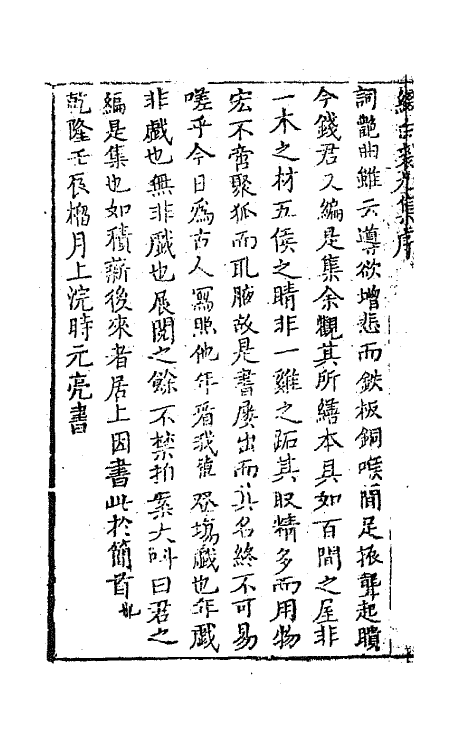 綴白裘九集序
詞艶曲雖云導欲增悲而鉄板銅喉間足振聾起聵
今錢君又編是集余觀其所繕本具如百間之屋非
一木之材五侯之鯖非一雞之跖其取精多而用物
宏不啻聚狐而取腋故是書屢出而其名終不可易
嗟乎今日爲古人寫照他年看我輩登塲戲也年戲
非戲也無非戲也展閱之餘不禁拍案大呌曰君之
編是集也如積薪後來者居上因書此於簡首
乾隆壬辰榴月上浣時元亮書